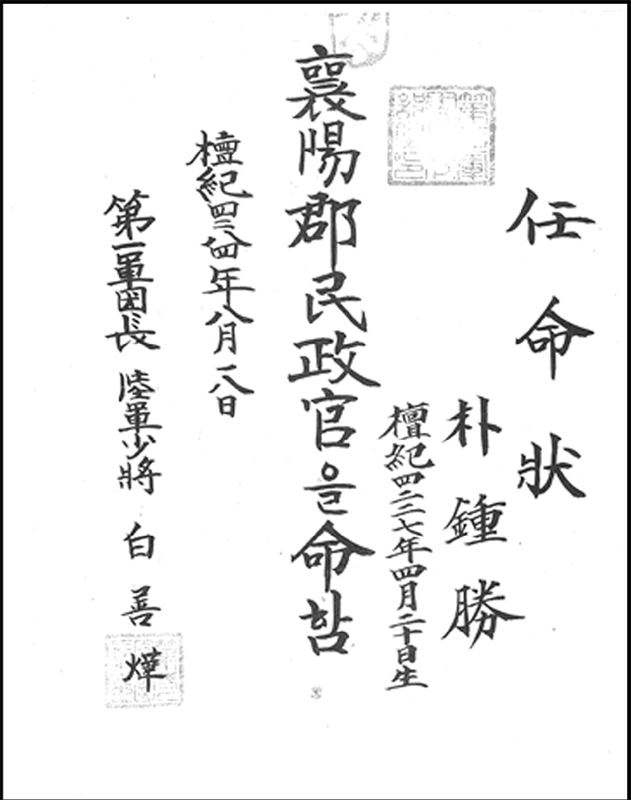 任命狀
朴鍾勝
檀紀四二二七年四月二十日生
襄陽郡民政官을命함
檀紀四二八四年八月一八日
第一軍団長 陸軍少將 白善燁